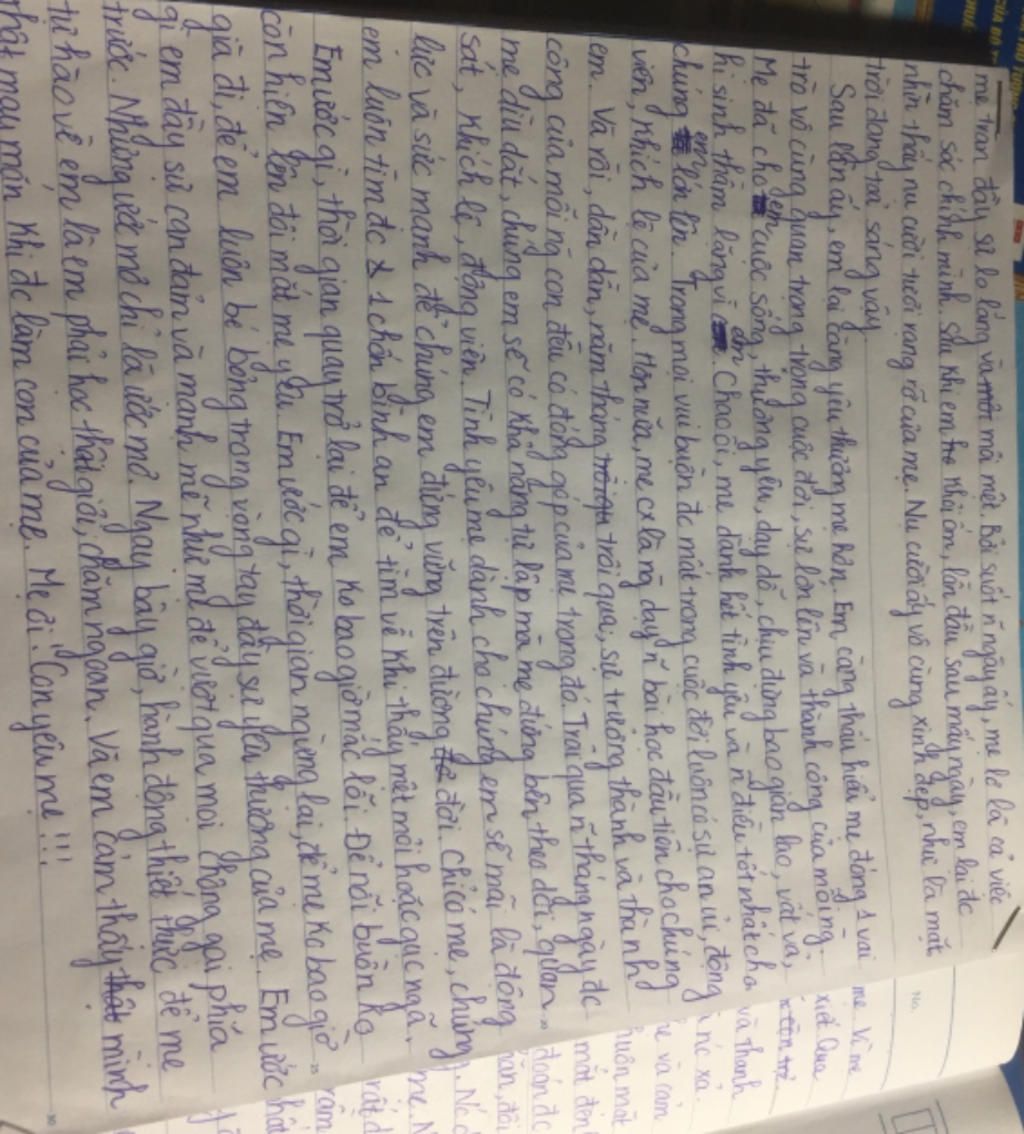 mẹ tràn đầy sự lo lắng và mỏi mệt. Bởi suốt ñ ngày ấy, mẹ lo là cả việc
chăm sóc chính mình. Sau khi em khỏi ốm, lần đầu sau mấy ngày, em lại đc
nhìn thấy nụ cười tươi rạng rỡ của mẹ. Nụ cười ấy vô cùng xinh đẹp, như là mặt
trời đang toả sáng vậy.
Sau lần ấy, em lại càng yêu thương mẹ hơn. Em càng thấu hiểu mẹ đóng 1 vai
trò vô cùng quan trọng trong cuộc đời, sự lớn lên và thành công của mỗi ng.
Mẹ đã cho em cuộc sống, thương yêu, dạy dỗ, chịu đựng bao gian lao, vất vả,
hi sinh thầm lặng vì em. Chao ôi, mẹ dành hết tình yêu và ñ điều tốt nhất cho
chúng em lớn lên. Trong mọi vui buồn đc mất trong cuộc đời luôn có sự an ủi, động
viên, khích lệ của mẹ. Hơn nữa, mẹ cx là ng dạy ñ bài học đầu tiên cho chúng
em. Và rồi, dần dần, năm tháng trôi qua, sự trưởng thành và thành
công của mỗi ng con đều có đóng góp của mẹ trong đó. Trải qua ñ tháng ngày đc
mẹ dìu dắt, chúng em sẽ có khả năng tự lập mà mẹ đứng bên theo dõi, quan
sát, khích lệ, động viên. Tình yêu mẹ dành cho chúng em sẽ mãi là động
lực và sức mạnh để chúng em đứng vững trên đường đời. Chỉ có mẹ, chúng
em luôn tìm đc 1 chốn bình an để tìm về khi thấy mệt mỏi hoặc gục ngã.
Em ước gì, thời gian quay trở lại để em ko bao giờ mắc lỗi. Để nỗi buồn ko
còn hiện lên đôi mắt mẹ yêu. Em ước gì, thời gian ngừng lại, để mẹ ko bao giờ
già đi, để em luôn bé bỏng trong vòng tay đầy sự yêu thương của mẹ. Em ước
gì em đầy sự can đảm và mạnh mẽ như mẹ để vượt qua mọi chông gai phía
trước. Nhưng ước mơ chỉ là ước mơ. Ngay bây giờ, hành động thiết thực để mẹ
tự hào về em là em phải học thật giỏi, chăm ngoan. Và em cảm thấy mình
thật may mắn khi đc làm con của mẹ. Mẹ ơi! Con yêu mẹ!!!
No.
mẹ. Vì mẹ
xiết. Qua
và thanh